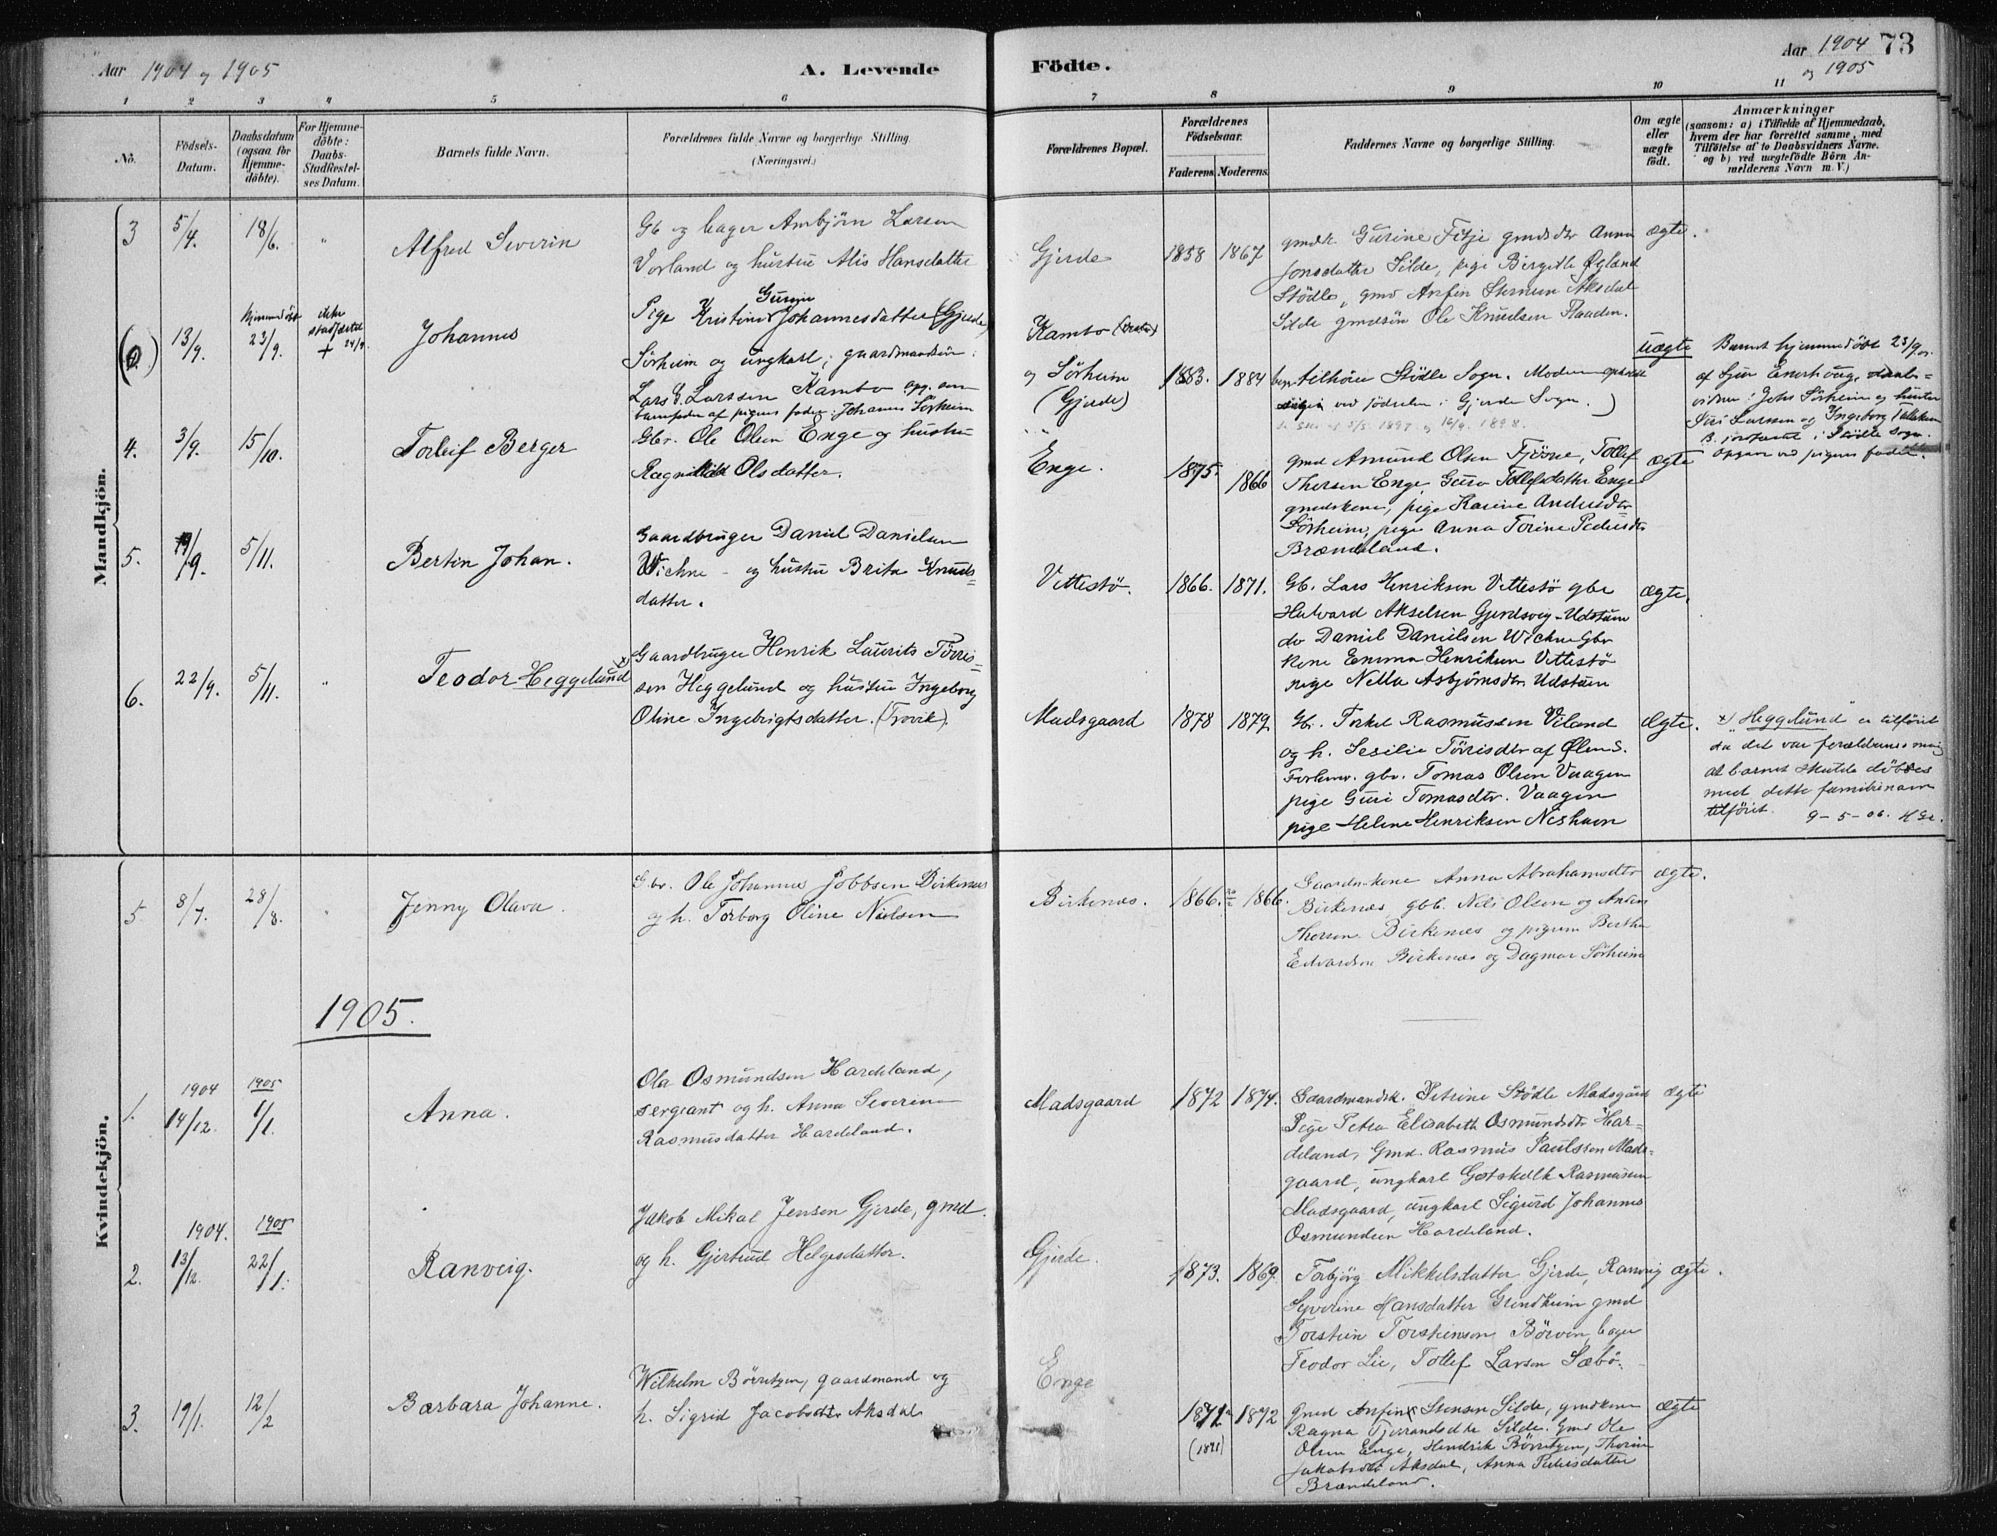 Aar 1904 og 1905
A. Levende Födte.
Aar 1904 og 1905
73
1 2 3 4 5 6 7 8 9 10 11
No.
Födsels-Datum.
Daabsdatum (ogsaa for Hjemme-döbte).
For Hjemme-döbte: Daabs-Stadfæstel-ses Datum.
Barnets fulde Navn.
Forældrenes fulde Navne og borgerlige Stilling.
(Næringsvei.)
Forældrenes Bopæl.
Forældrenes Födselsaar.
Faderens. Moderens.
Faddernes Navne og borgerlige Stilling.
Om ægte eller uægte födt.
Anmærkninger
(saasom: a) i Tilfælde af Hjemmedaab,
hvem der har forrettet samme, med
Tilföielse af to Daabsvidners Navne.
og b) ved uægtefödte Börn An-
melderens Navn m. V.)
Mandkjön.
3 5/4. 18/6. " Alfred Severin
Gb og bager Ambjörn Larsen
Vorland og hustru Alis Hansdatter
Gjerde 1858 1867
gmdk. Gurine Fitje gmdsdtr Anna
Jonsdatter Silde, pige Birgitte Øgland
Stödle, gmd Anfin Stensen Aksdal
Silde gmdsön Ole Knudsen Flaaden.
ægte.
13/9. hjemmedöbt 23/9. ikke stadfæstet + 24/9 Johannes
Pige Kristine Gurine Johannesdatter (Gjerde)
Sörheim og ungkarl, gaardmandssön:
Lars G. Larssen Kambo opg. som
barnefader af pigens fader: Johannes Sörheim
Kambo
og Sörheim
(Gjerde)
1883. 1884
tilhörer Stödle Sogn. Moderen
ved födselen i Gjerde Sogn.)
uægte
Barnet hjemmedöbt 23/9
af Sjur Enerhaug, daabs-
vidner: John Sörheim og hustru
Siri Larssen og Ingeborg
B. jordfæstet i Stödle Sogn.
opgivr ved pigens fader.
4. 3/9. 15/10. Torleif Berger
Gbr. Ole Olsen Enge og hustru
Ragnhilda Olsdatter.
Enge. 1875. 1866
gmd Amund Olsen Fjösne, Tollef
Thorsen Enge, Guro Tollefsdatter Enge
gmdskone, pige Karine Andersdtr
Sörheim, pige Anna Torine Pedersdtr
Brændeland.
ægte
5. 19/9. 5/11. Bertin Johan.
Gaardbruger Daniel Danielsen
Wichne – og hustru Brita Knuds-
datter.
Vettestö. 1866. 1871.
Gb. Lars Henriksen Vettestö gbr
Halvard Akselsen Gjerdsvig-Udstum
do Daniel Danielsen Wichne Gbr
kone Emma Henriksen Vettestö
pige Nella Asbjörnsdtr Udstum
ægte.
6. 22/9. 5/11. " Teodor Heggelund x)
Gaardbruger Henrik Laurits Törris-
sen Heggelund og hustru Ingeborg
Oline Ingebrigtsdatter. (Trovik).
Madsgaard 1878 1879
Gb. Torkel Rasmussen Viland
og h. Sesilie Törrisdtr af Ølens.
Forlener. gbr. Tomas Olsen Vaagen
pige Guri Tomasdtr. Vaagen
pige Helene Henriksen Neshavn
Ægte.
x) "Heggelund" er tilföiet
da det var forældrenes mening
at barnet skulde döbes
med dette familienavn
tilföiet. 9-5-06.
Kvindekjön.
5. 8/7. 28/8. " Jenny Olava.
Gbr. Ole Johannes Jobbsen Birkenes
og h. Torborg Oline Nielsen
Birkenæs. 1866. 1866.
Gaardm.kone Anna Abrahamsdtr
Birkenæs gbb. Nels Olsen og Anders
Thorsen Birkenæs og pigerne Berthe
Edvardsen Birkenæs og Dagmar Sörheim
ægte.
1905.
1. 1904 14/12. 1905 1/1. Anna.
Ola Osmundsen Hardeland,
sergeant og h. Anna Severine
Rasmusdatter Hardeland.
Madsgaard 1872 1874.
Gaardmandsk. Petrine Stödle Madsgård
Pige Petra Elisabeth Osmundsdtr Har-
deland, Gmd. Rasmus Paulssen Mads-
gaard, ungkarl Gotskalk Rasmussen
Madsgaard, ungkarl Sigurd Johannes
Osmundsen Hardeland.
ægte
2. 1904. 13/12. 1905 22/1. Ranveig.
Jakob Mikal Jensen Gjerde, gmd.
og h. Gjertrud Helgesdatter.
Gjerde. 1873. 1869.
Torbjörg Mikkelsdatter Gjerde, Ranveig
Syverine Hansdatter Grindheim gmd
Torstein Torsteinsen Börven, bager
Teodor Lie, Tollef Larsen Sæbö.
ægte.
3. 19/1. 12/2 Barbara Johanne.
Wilhelm Börretzen, gaardmand og
h. Sigrid Jacobsdtr Aksdal
Enge 1871 (1871) 1872
Gmd Anfin Stensen Silde, gmdkone
Ragna Tjerrandsdtr Silde. Gmd Ole
Olsen Enge, Hendrik Börretzen, Thorine
Jakobsdtr Aksdal, Anna Pedersdatter
Brændeland.
ægte